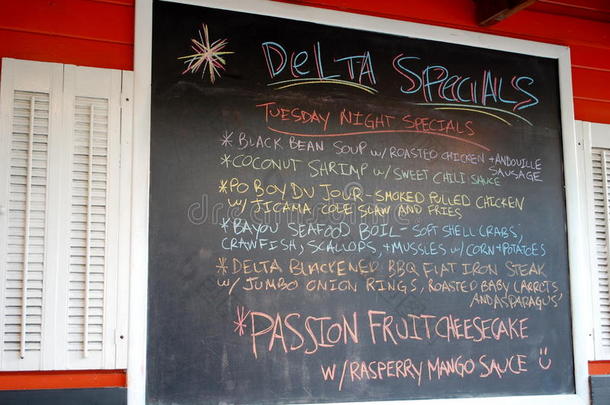 DELTA SPECIALS
TUESDAY NIGHT SPECIALS
* BLACK BEAN SOUP W/ ROASTED CHICKEN + ANDOUILLE
SAUSAGE
* COCONUT SHRIMP W/ SWEET CHILI SAUCE
* PO BOY DU JOUR - SMOKED PULLED CHICKEN
W/ JICAMA COLE SLAW AND FRIES
* BAYOU SEAFOOD BOIL - SOFT SHELL CRABS,
CRAWFISH, SCALLOPS, + MUSSLES W/ CORN + POTATOES
* DELTA BLACKENED BBQ FLAT IRON STEAK
W/ JUMBO ONION RINGS, ROASTED BABY CARROTS,
AND ASPARAGUS
* PASSION FRUIT CHEESECAKE
W/ RASPERRY MANGO SAUCE